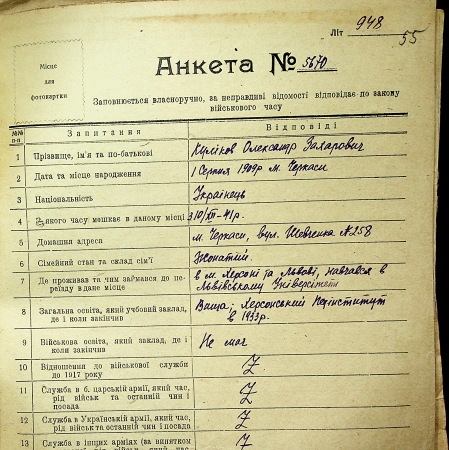 Літ 948
55
Місце
для
фотокартки
Анкета № 5670
Заповнюється власноручно, за неправдиві відомості відповідає по закону
військового часу
№№ п-п Запитання Відповіді
1 Прізвище, ім'я та по-батькові Куліков Олександр Захарович
2 Дата та місце народження 1 Серпня 1909р м. Черкаси
3 Національність Українець
4 З якого часу мошкає в даному місці З 10/XII-41р.
5 Домашня адреса м. Черкаси, вул. Шевченка №258
6 Сімейний стан та склад сім'ї Жонатий.
7 Де проживав та чим займався до пе- в м. Херсоні та Львові, навчався в
реїзду в дане місце Львівському Університеті
8 Загальна освіта, який учбовий заклад, Вища; Херсонський Педінститут
де і коли закінчив в 1933р.
9 Військова освіта, який заклад, де і Не має
коли закінчив
10 Відношення до військової служби Z
до 1917 року
11 Служба в б. царській армії, який час, Z
рід військ та останній чин і
посада
12 Служба в Українській армії, який час, Z
рід військ та останній чин і посада
13 Служба в інших арміях (за винятком Z